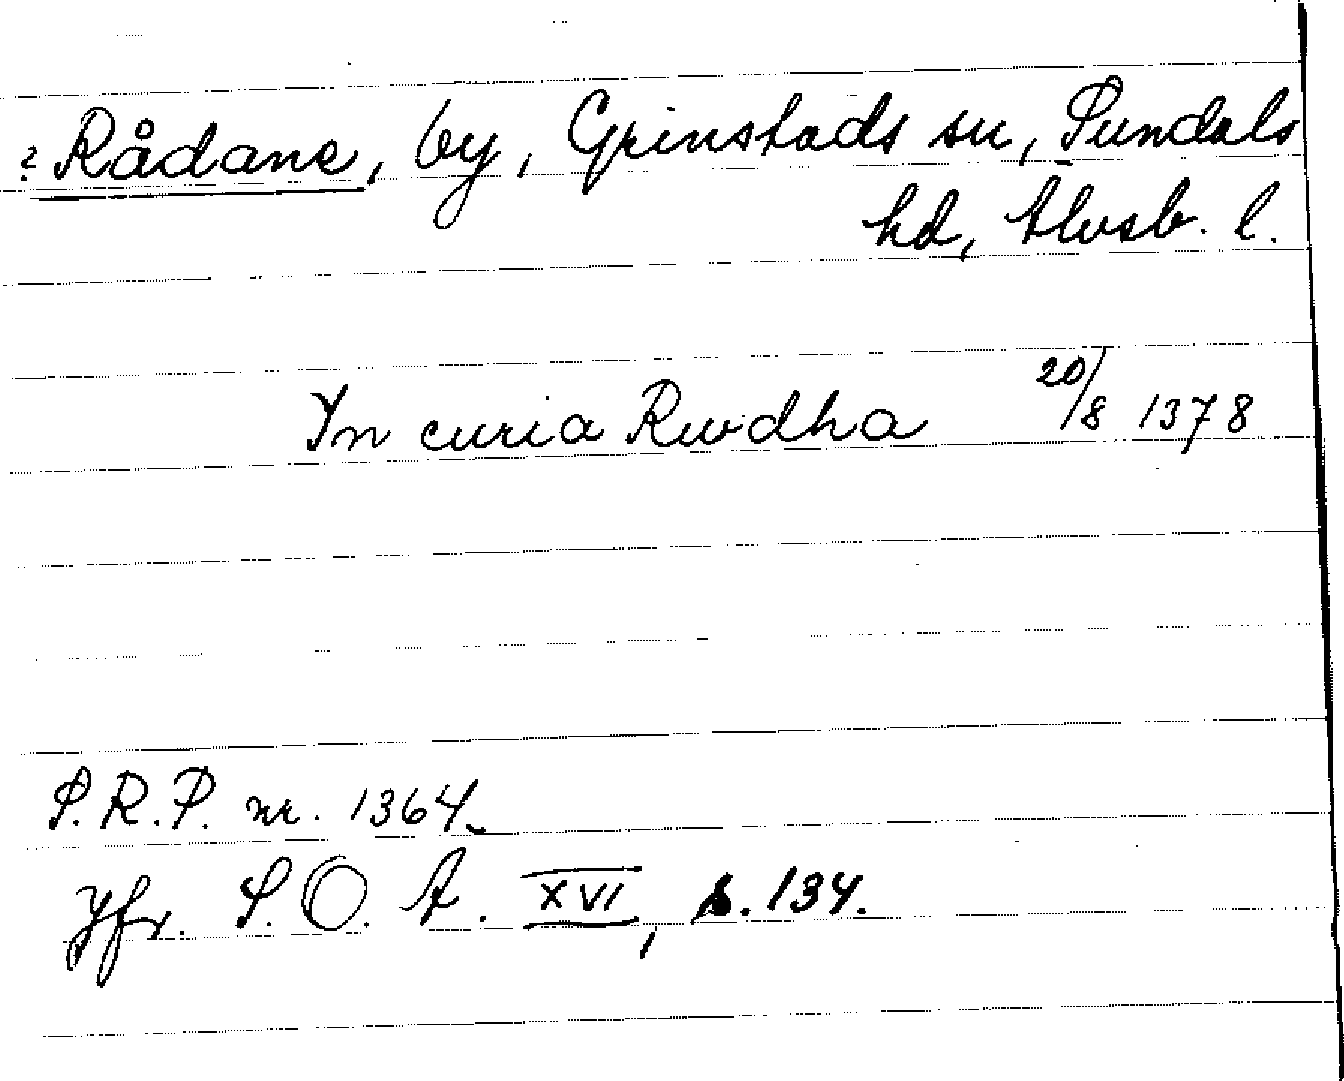 ? Rådane, by, Grinstads sn, Sundals
hd, Älvsb. l.
In curia Rwdha 20/8 1378
S.R.P. nr. 1364.
Jfr. S.O.Ä. XVI, s. 134.